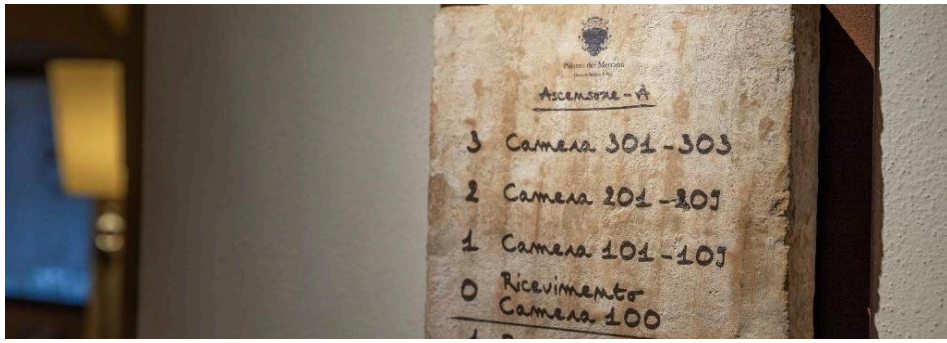 Palazzo dei Mercanti
Ascensore - A
3 Camera 301-303
2 Camera 201-209
1 Camera 101-109
0 Ricevimento
Camera 100